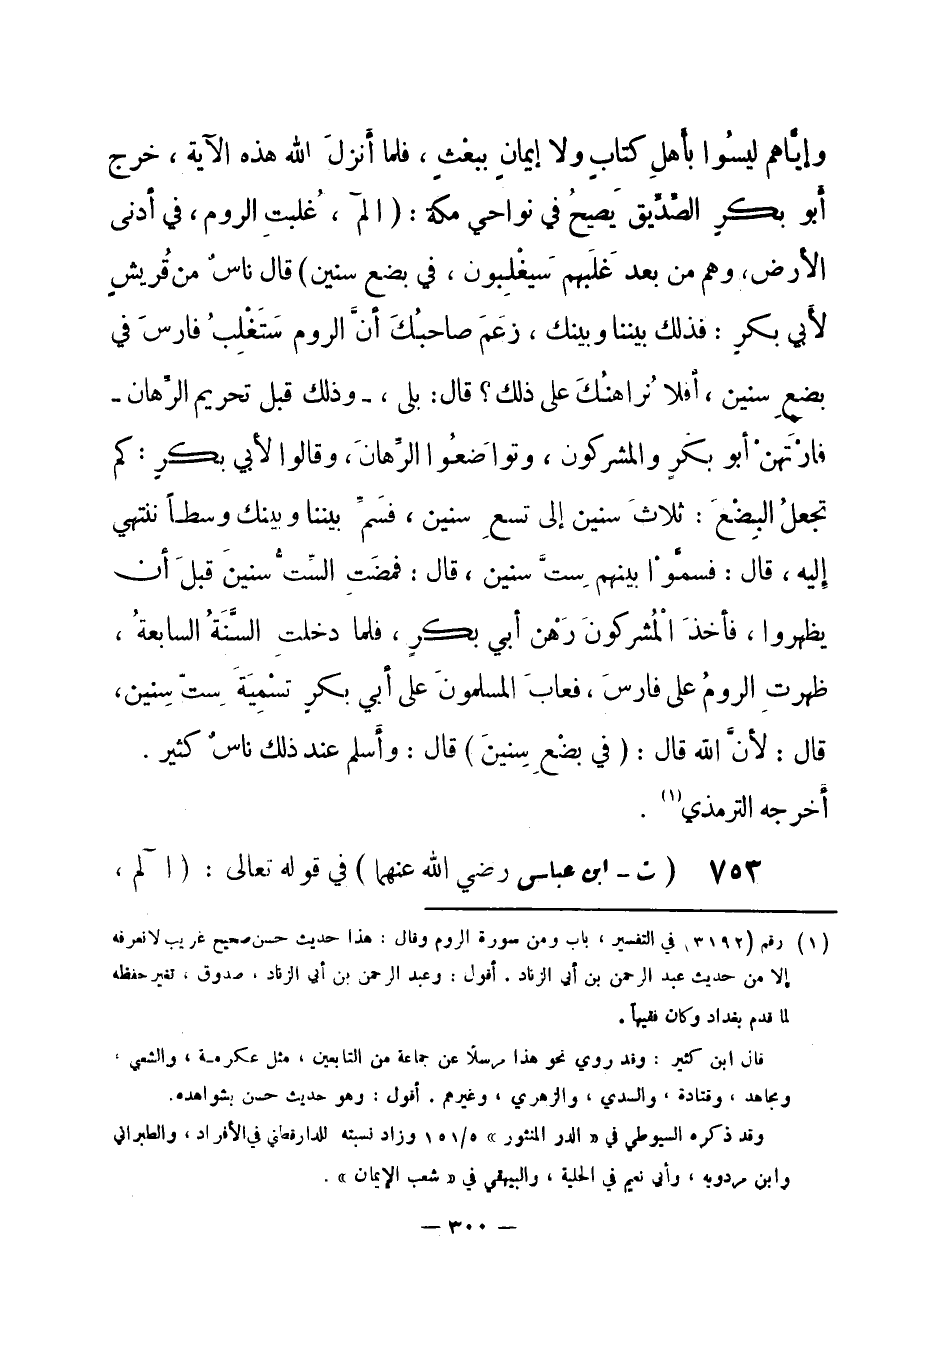 وإيَّاهم ليسُوا بأهلِ كتابٍ ولا إيمانٍ ببعْثٍ ، فلما أَنزلَ الله هذه الآية ، خرج
أَبو بكرٍ الصِّدِّيق يَصيحُ في نواحي مكة : ( الم ، غُلبتِ الروم ، في أَدنى
الأرض، وهم من بعد غَلَبهم سَيغْلِبون ، في بضع سنين) قال ناسٌ من قُريشٍ
لأَبي بكرٍ : فذلك بيننا وبينك ، زعَمَ صاحبُكَ أَنَّ الروم سَتَغْلِبُ فارسَ في
بضعِ سنين ، أفلا نُراهنُكَ على ذلك ؟ قال: بلى ، ـ وذلك قبل تحريم الرِّهان ـ
فارْتَهنْ أبو بكرٍ والمشركون ، وتواضَعُوا الرِّهانَ، وقالوا لأبي بكرٍ : كم
تجعلُ البِضْعَ : ثلاثَ سنين إلى تسعِ سنين ، فسَمِّ بيننا وبينك وسطاً ننتهي
إليه ، قال : فسمَّوْا بينهم سِتَّ سنين ، قال : فمضَتِ السِّتُّ سنينَ قبلَ أن
يظهروا ، فأخذَ الْمُشركونَ رَهْن أبي بكرٍ ، فلما دخلتِ السَّنَةُ السابعةُ ،
ظهرتِ الرومُ على فارسَ ، فعابَ المسلمونَ على أَبي بكرٍ تسْمِيَةَ سِتّ سِنين،
قال : لأنَّ الله قال : ( في بضْعِ سِنينَ ) قال : وأَسلم عند ذلك ناسٌ كثير .
أَخرجه الترمذي(١) .
٧٥٣ ( ت ـ ابن عباس رضي الله عنهما ) في قوله تعالى : ( الٓم ،
(١) رقم (٣١٩٢) في التفسير ، باب ومن سورة الروم وقال : هذا حديث حسن صحيح غريب لا نعرفه
إلا من حديث عبد الرحمن بن أبي الزناد . أقول : وعبد الرحمن بن أبي الزناد ، صدوق ، تغير حفظه
لما قدم بغداد وكان فقيهاً .
قال ابن كثير : وقد روي نحو هذا مرسلًا عن جماعة من التابعين ، مثل عكرمة ، والشعبي ،
ومجاهد ، وقتادة ، والسدي ، والزهري ، وغيرهم . أقول : وهو حديث حسن بشواهده.
وقد ذكره السيوطي في « الدر المنثور » ٥/١٥١ وزاد نسبته للدارقطني في الأفراد ، والطبراني
وابن مردويه ، وأبي نعيم في الحلية ، والبيهقي في « شعب الإيمان » .
— ٣٠٠ —